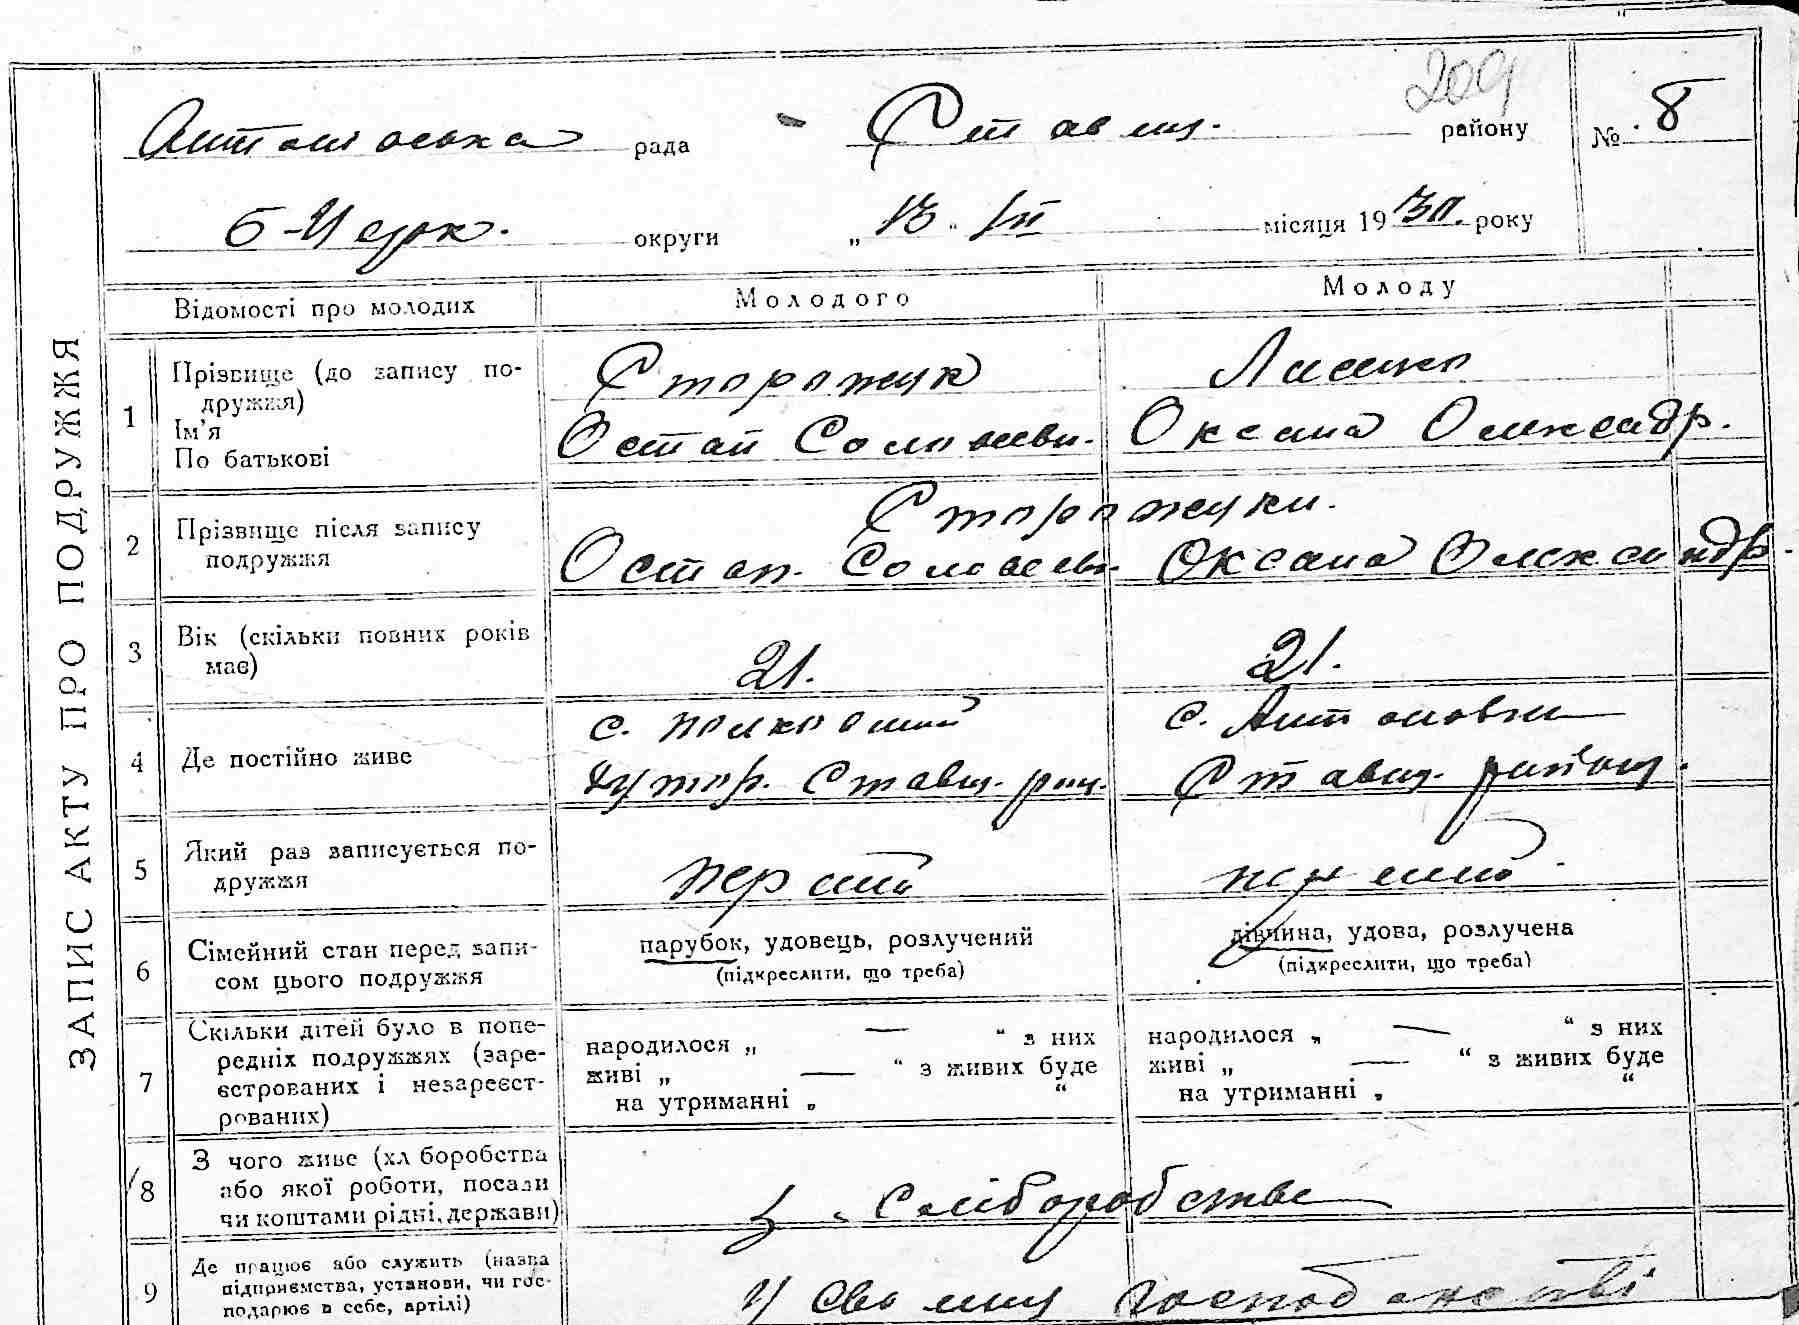 209
Антонівська рада - Ставищ. району № 8
Б-Церк. округи „ 13 " III місяця 1930. року
ЗАПИС АКТУ ПРО ПОДРУЖЖЯ
Відомості про молодих Молодого Молоду
1 Прізвище (до запису по-
дружжя)
Ім'я
По батькові
Сторожук
Остап Соловеєви.
Оксана Олександр.
2 Прізвище після запису
подружжя
Сторожуки.
Остап. Соловеєви. Оксана Олександр.
3 Вік (скільки повних років
має)
21. 21.
4 Де постійно живе
с.
хутор. Ставищ. рай.
с. Антоновки
Ставищ. району.
5 Який раз записується по-
дружжя
перший перший
6 Сімейний стан перед запи-
сом цього подружжя
парубок, удовець, розлучений
(підкреслити, що треба)
дівчина, удова, розлучена
(підкреслити, що треба)
7 Скільки дітей було в попе-
редніх подружжях (заре-
єстрованих і незареєст-
рованих)
народилося „ — " з них
живі „ — " з живих буде
на утриманні „ "
народилося „ — " з них
живі „ — " з живих буде
на утриманні „ "
8 З чого живе (хлiборобства
або якої роботи, посади
чи коштами рідні, держави)
з
9 Де працює або служить (назва
підприємства, установи, чи гос-
подарює в себе, артілі)
У своєму господарстві